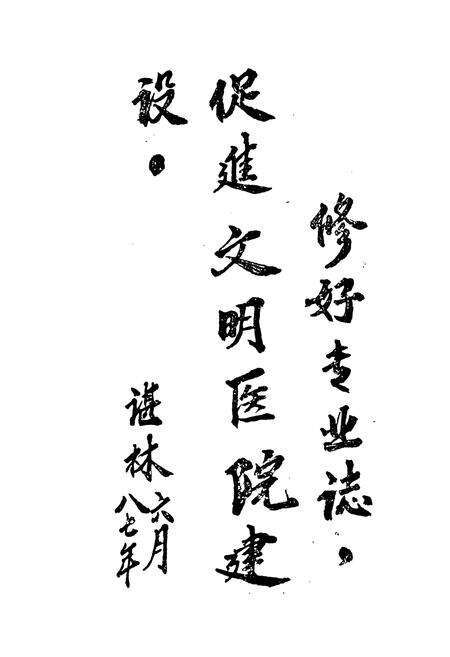 修好专业誌，
促進文明医院建
设。
谌林
八七年
六月